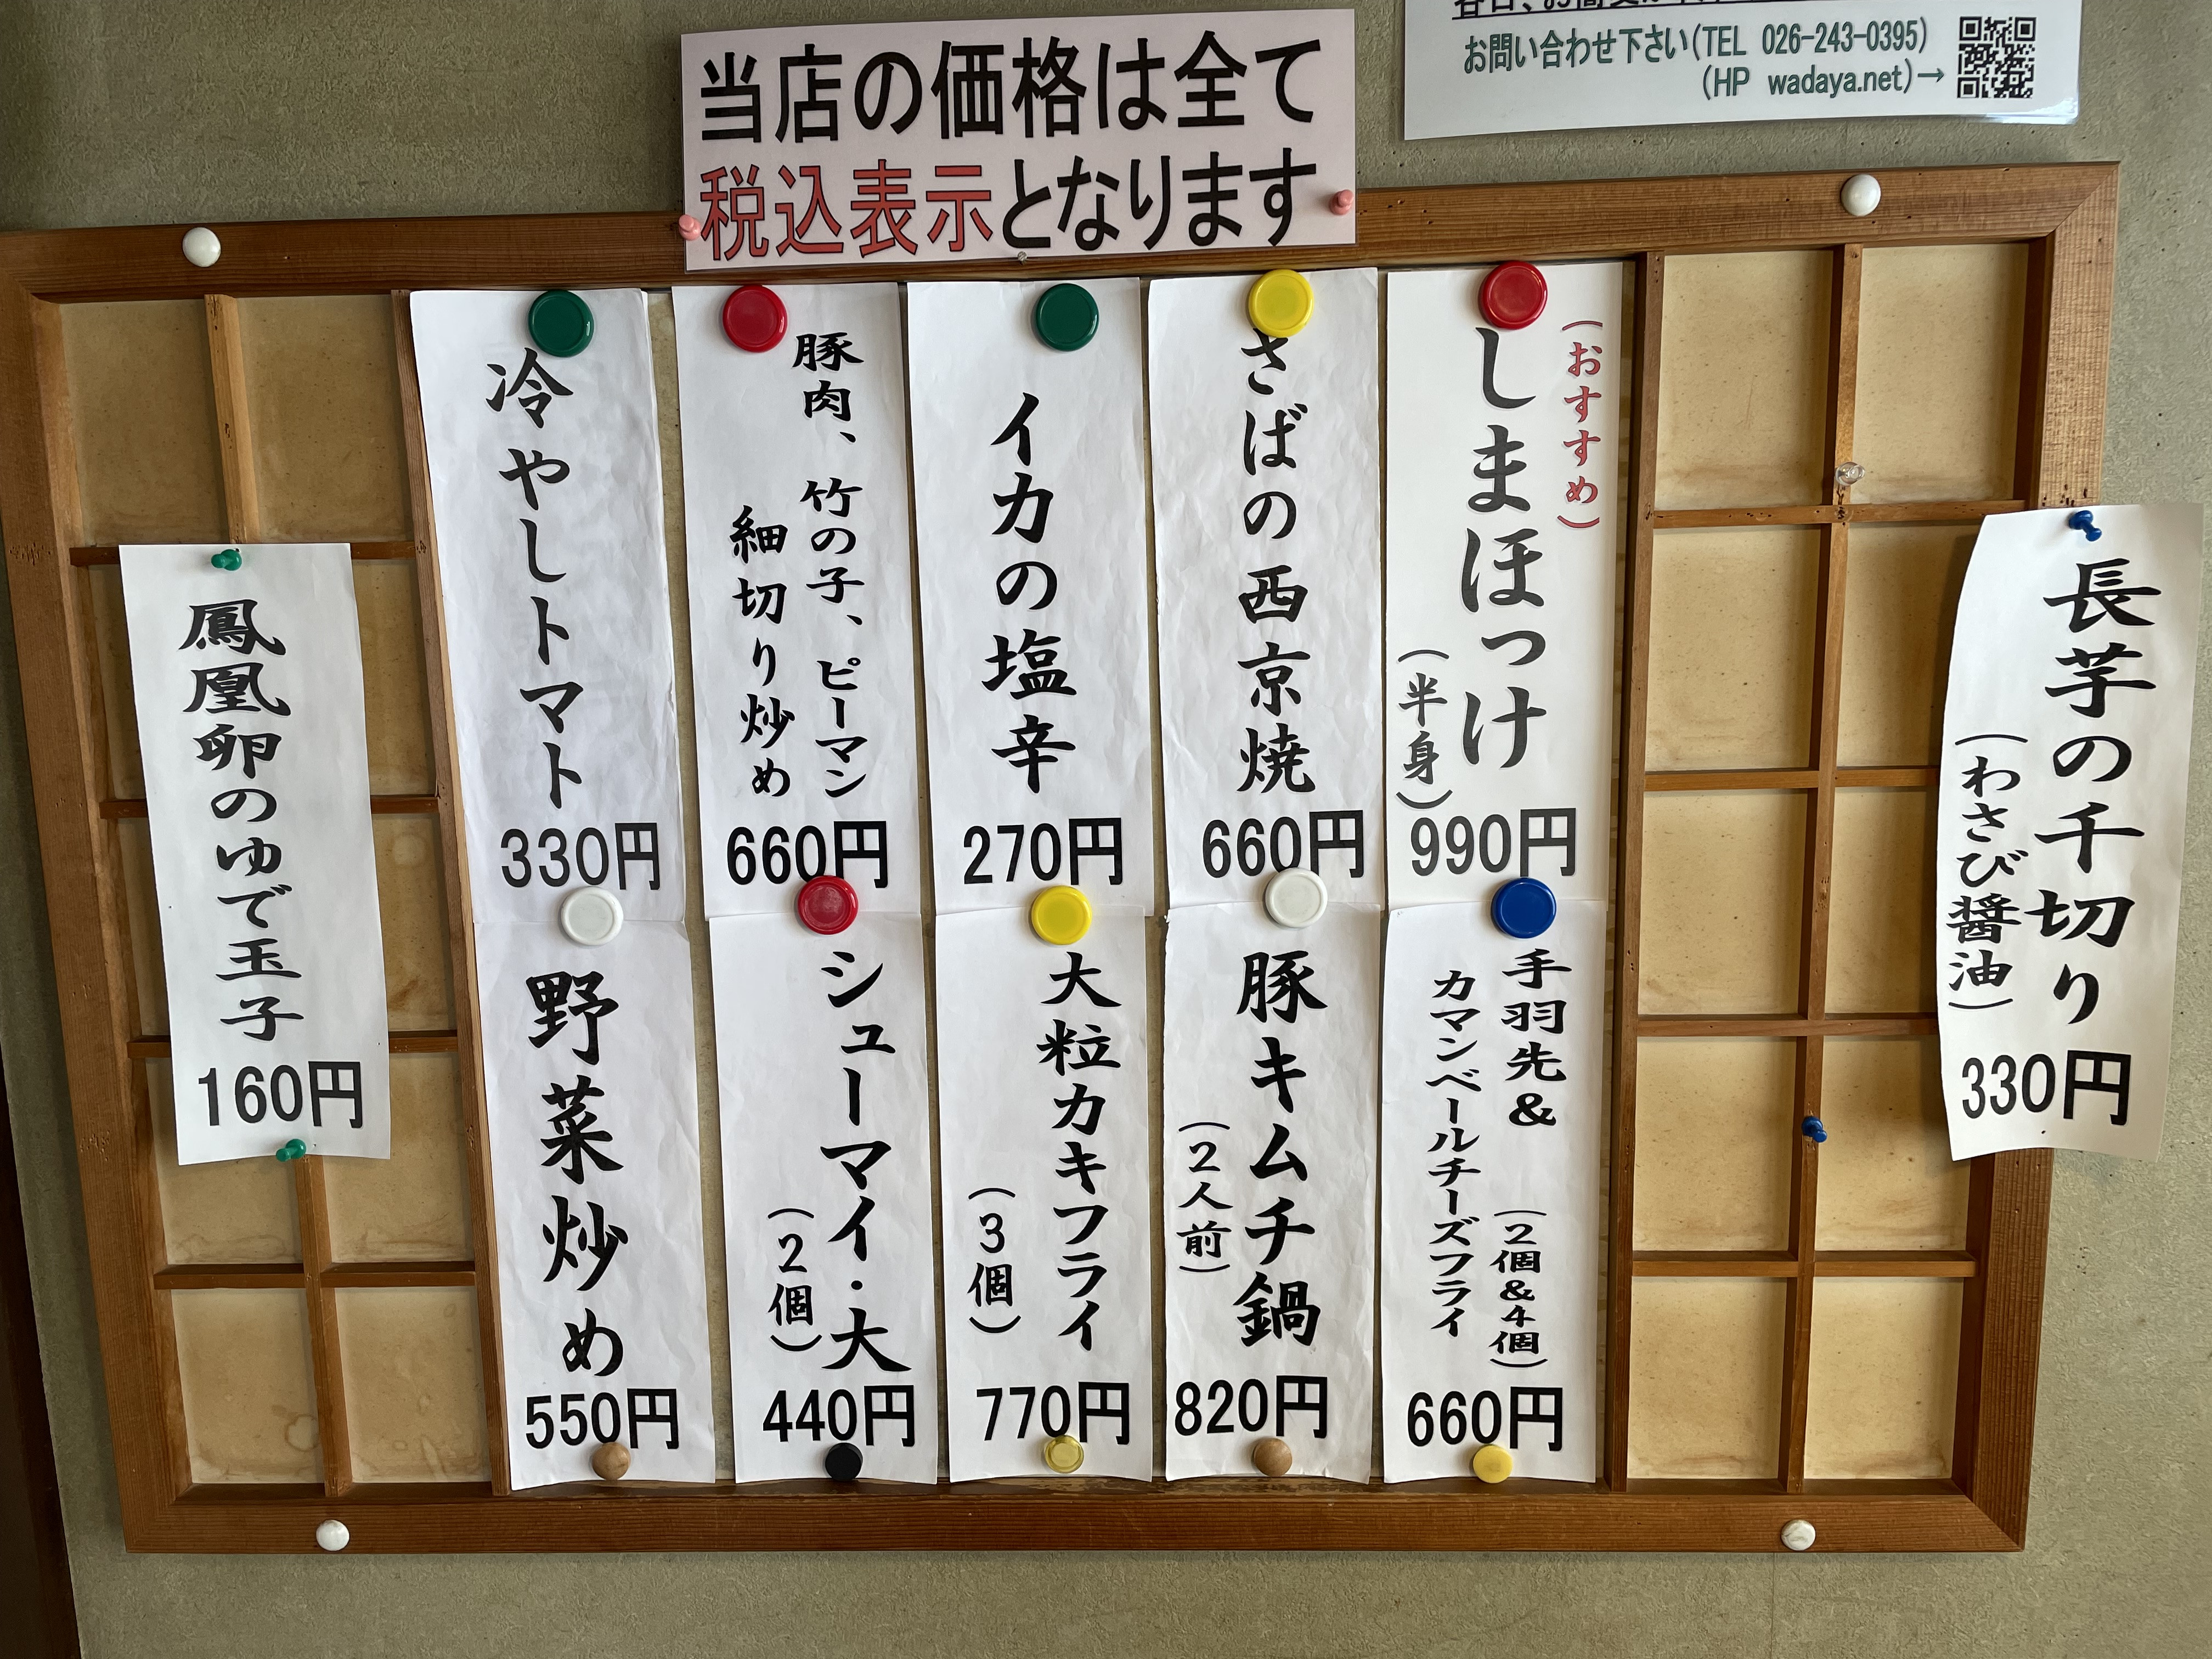 お問い合わせ下さい(TEL 026-243-0395)
(HP wadaya.net)→
当店の価格は全て
税込表示となります
長芋の千切り
(わさび醤油)
330円
(おすすめ)
しまほっけ
(半身)
990円
さばの西京焼
660円
イカの塩辛
270円
豚肉、竹の子、ピーマン
細切り炒め
660円
冷やしトマト
330円
手羽先& (2個&4個)
カマンベールチーズフライ
660円
豚キムチ鍋
(2人前)
820円
大粒カキフライ
(3個)
770円
シューマイ・大
(2個)
440円
野菜炒め
550円
鳳凰卵のゆで玉子
160円